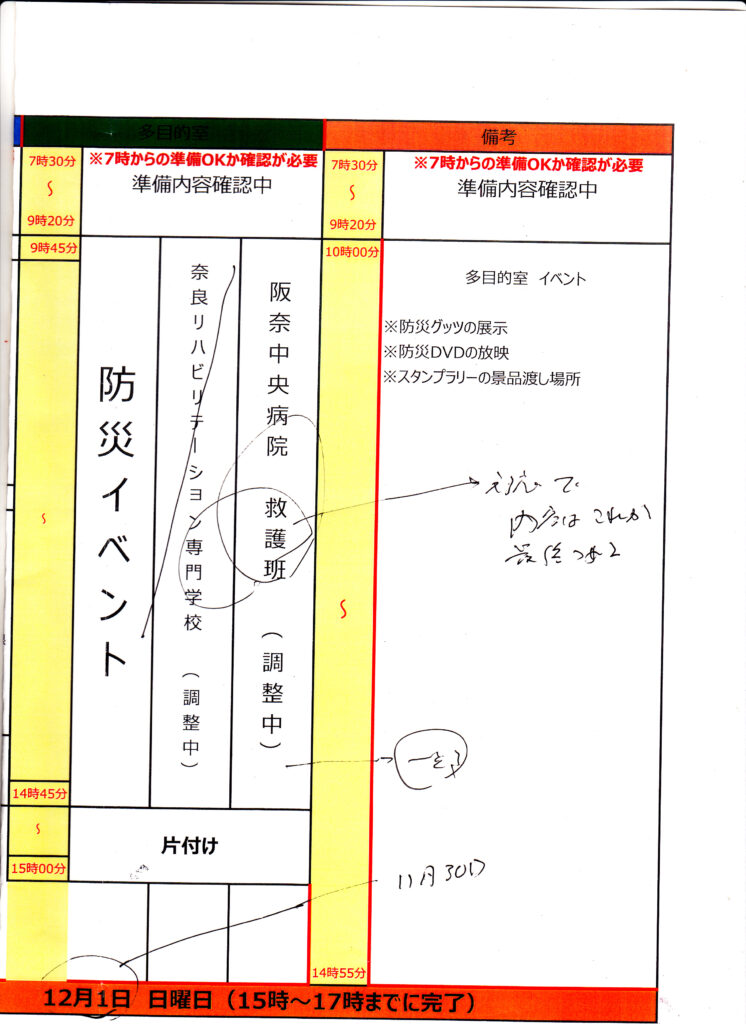 多目的室
備考
7時30分
~
9時20分
※7時からの準備OKか確認が必要
準備内容確認中
7時30分
~
9時20分
※7時からの準備OKか確認が必要
準備内容確認中
9時45分
~
14時45分
防災イベント
奈良リハビリテーション専門学校 (調整中)
阪奈中央病院 救護班 (調整中)
10時00分
~
14時55分
多目的室 イベント
※防災グッツの展示
※防災DVDの放映
※スタンプラリーの景品渡し場所
内容はこれが
~
15時00分
片付け
11月30日
12月1日 日曜日(15時~17時までに完了)